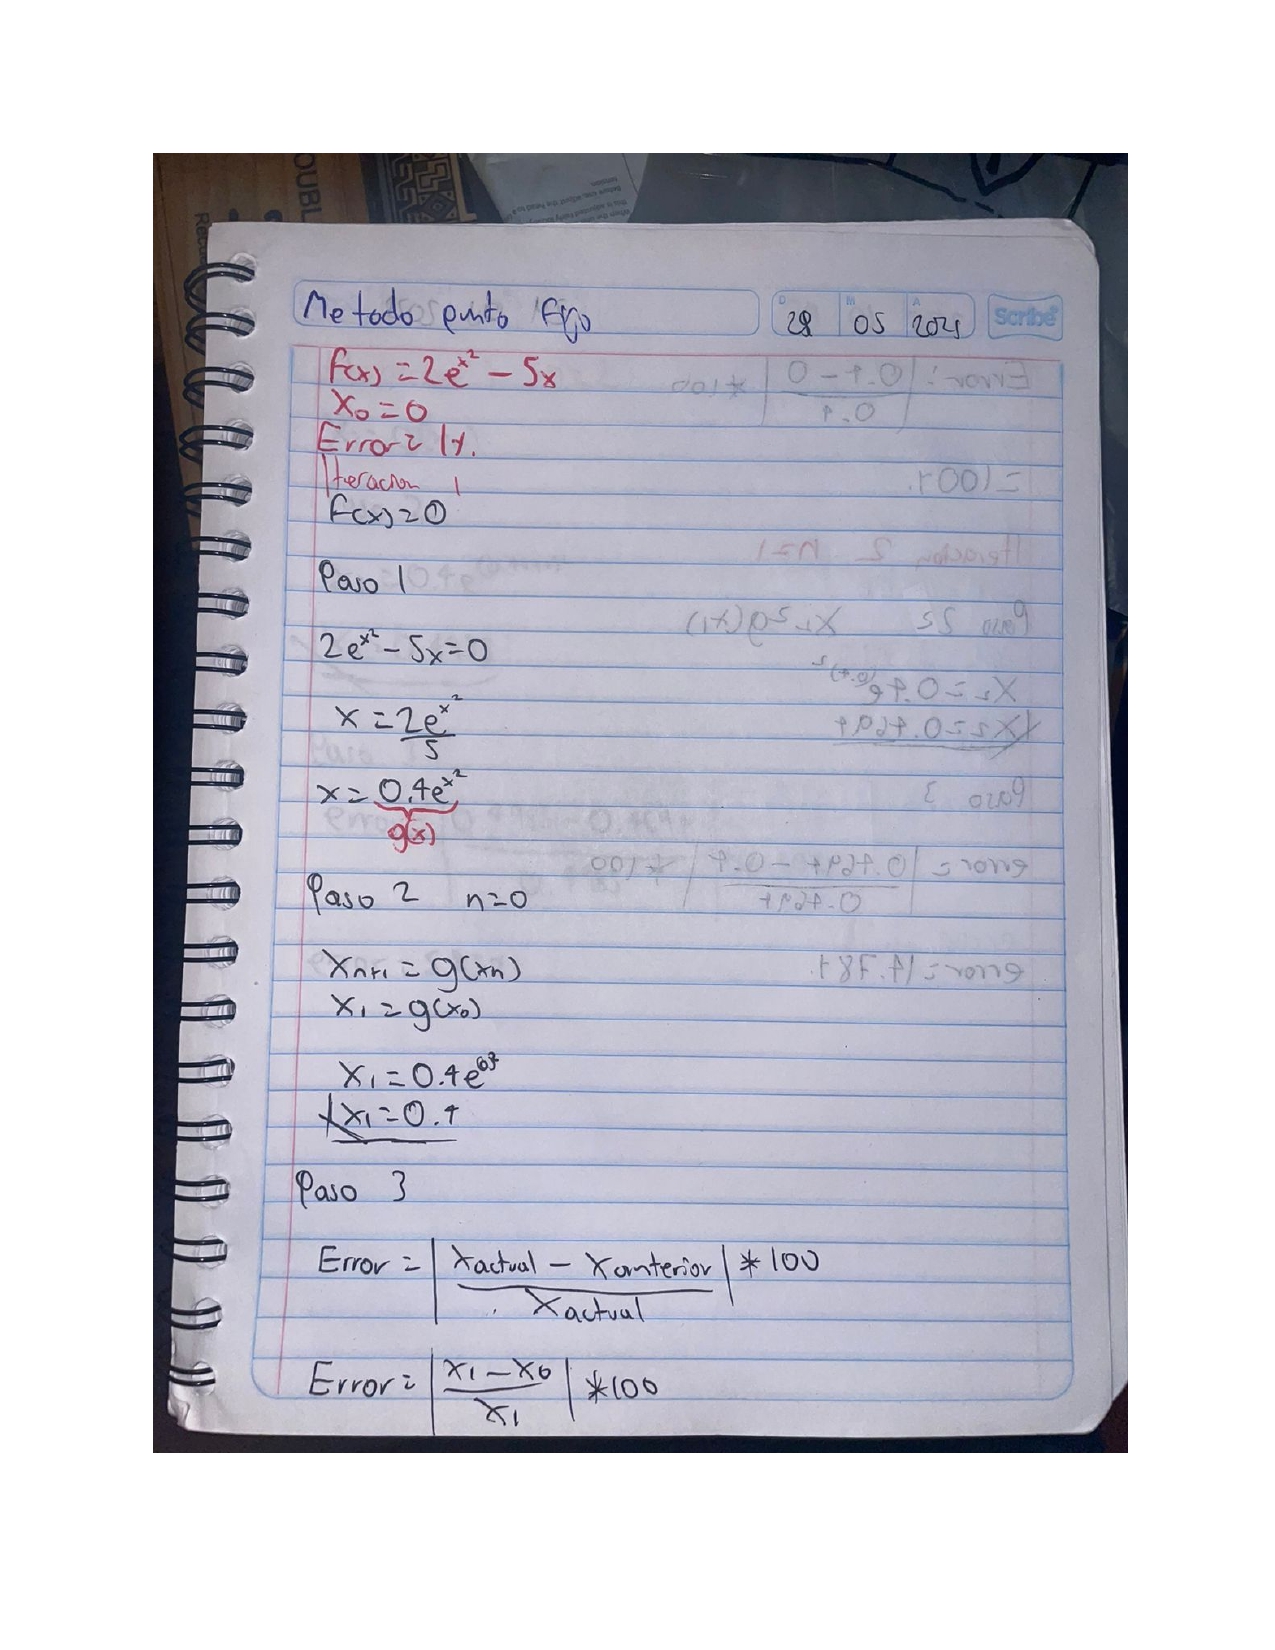 Metodo punto fijo
D M A
28 05 2021
Scribe
f(x) = 2e^x² - 5x
x₀ = 0
Error = 1%.
Iteracion 1
f(x) = 0
Paso 1
2e^x² - 5x = 0
x = 2e^x² / 5
x = 0.4e^x²
g(x)
Paso 2 n=0
Xn+1 = g(xn)
X₁ = g(x₀)
X₁ = 0.4e^(0)²
X₁ = 0.4
Paso 3
Error = | Xactual - Xanterior / Xactual | * 100
Error = | X₁ - X₀ / X₁ | * 100